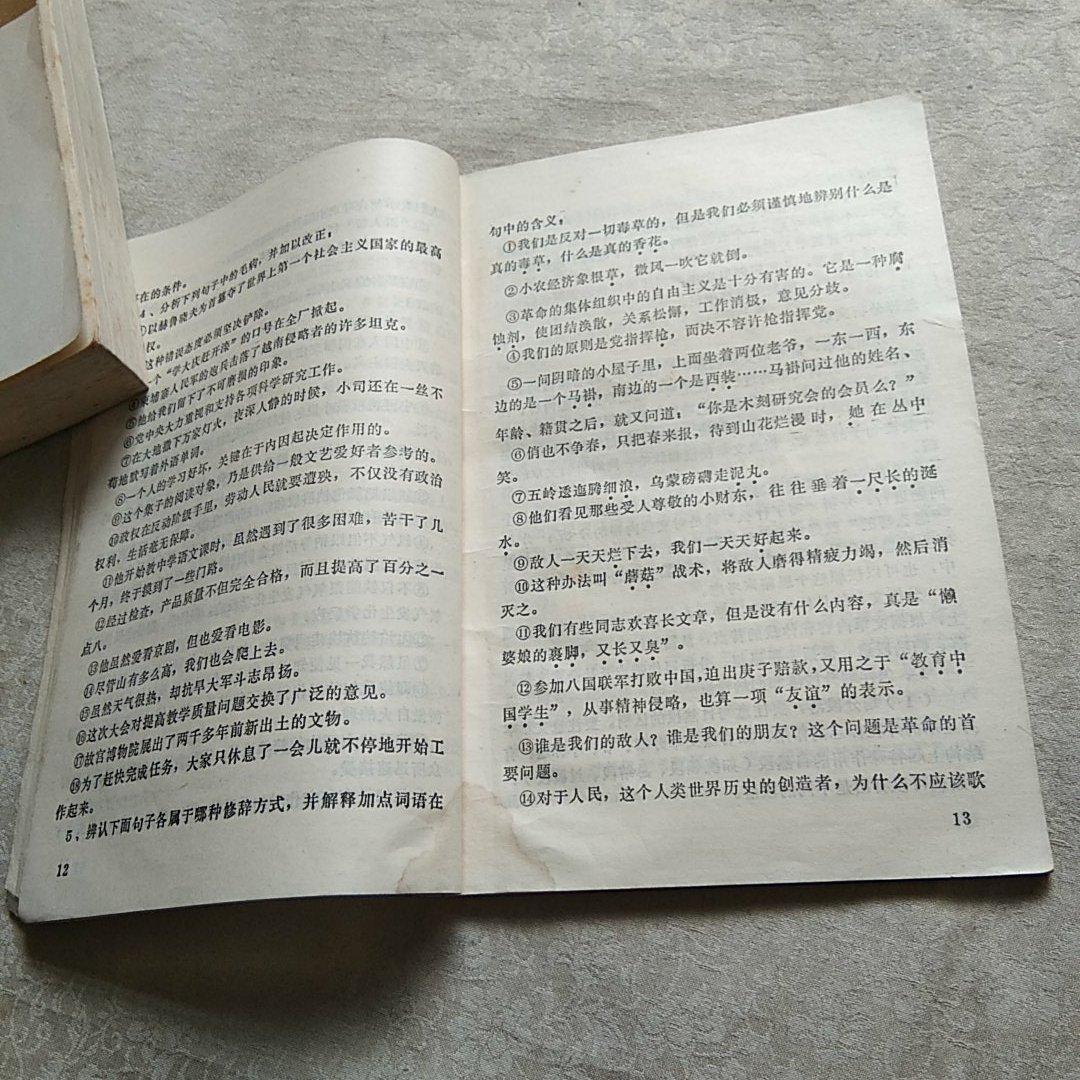 存在的条件。
4、分析下列句子中的毛病,并加以改正:
①以赫鲁晓夫为首篡夺了世界上第一个社会主义国家的最高
权。
这种错误态度必须坚决铲除。
个“学大庆赶开滦”的口号在全厂掀起。
④柬埔寨人民军的炮兵击落了越南侵略者的许多坦克。
⑤他给我们留下了不可磨损的印象。
⑥党中央大力重视和支持各项科学研究工作。
⑦在大地撒下万家灯火,夜深人静的时候,小司还在一丝不
苟地默写着外语单词。
⑧一个人的学习好坏,关键在于内因起决定作用的。
⑨这个集子的阅读对象,乃是供给一般文艺爱好者参考的。
⑩政权在反动阶级手里,劳动人民就要遭殃,不仅没有政治
权利,生活毫无保障。
⑪他开始教中学语文课时,虽然遇到了很多困难,苦干了几
个月,终于摸到了一些门路。
⑫经过检查,产品质量不但完全合格,而且提高了百分之一
点八。
⑬他虽然爱看京剧,但也爱看电影。
⑭尽管山有多么高,我们也会爬上去。
⑮虽然天气很热,却抗旱大军斗志昂扬。
⑯这次大会对提高教学质量问题交换了广泛的意见。
⑰故宫博物院展出了两千多年前新出土的文物。
⑱为了赶快完成任务,大家只休息了一会儿就不停地开始工
作起来。
5、辨认下面句子各属于哪种修辞方式,并解释加点词语在
12
句中的含义:
①我们是反对一切毒草的,但是我们必须谨慎地辨别什么是
真的毒草,什么是真的香花。
②小农经济象根草,微风一吹它就倒。
③革命的集体组织中的自由主义是十分有害的。它是一种腐
蚀剂,使团结涣散,关系松懈,工作消极,意见分歧。
④我们的原则是党指挥枪,而决不容许枪指挥党。
⑤一间阴暗的小屋子里,上面坐着两位老爷,一东一西,东
边的是一个马褂,南边的一个是西装……马褂问过他的姓名、
年龄、籍贯之后,就又问道:“你是木刻研究会的会员么?”
⑥俏也不争春,只把春来报,待到山花烂漫时,她在丛中
笑。
⑦五岭逶迤腾细浪,乌蒙磅礴走泥丸。
⑧他们看见那些受人尊敬的小财东,往往垂着一尺长的涎
水。
⑨敌人一天天烂下去,我们一天天好起来。
⑩这种办法叫“蘑菇”战术,将敌人磨得精疲力竭,然后消
灭之。
⑪我们有些同志欢喜长文章,但是没有什么内容,真是“懒
婆娘的裹脚,又长又臭”。
⑫参加八国联军打败中国,迫出庚子赔款,又用之于“教育中
国学生”,从事精神侵略,也算一项“友谊”的表示。
⑬谁是我们的敌人?谁是我们的朋友?这个问题是革命的首
要问题。
⑭对于人民,这个人类世界历史的创造者,为什么不应该歌
13